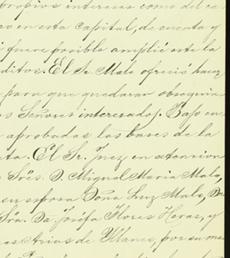 propios intereses como del ca
ro en esta capital, de cuenta y
fuere posible amplié este la
ditos. El Sr. Malo ofreció hacer
para que quedaran obsequia
s Señores interesados. Bajo en
aprobadas las bases de la
ta. El Sr. Juez en atencion
Sres. D. Miguel Maria Malo,
en esposa Doña Luz Malo, Da
Sra. Da. Josefa Flores Heras, y
as Arias de Llanes, por su me